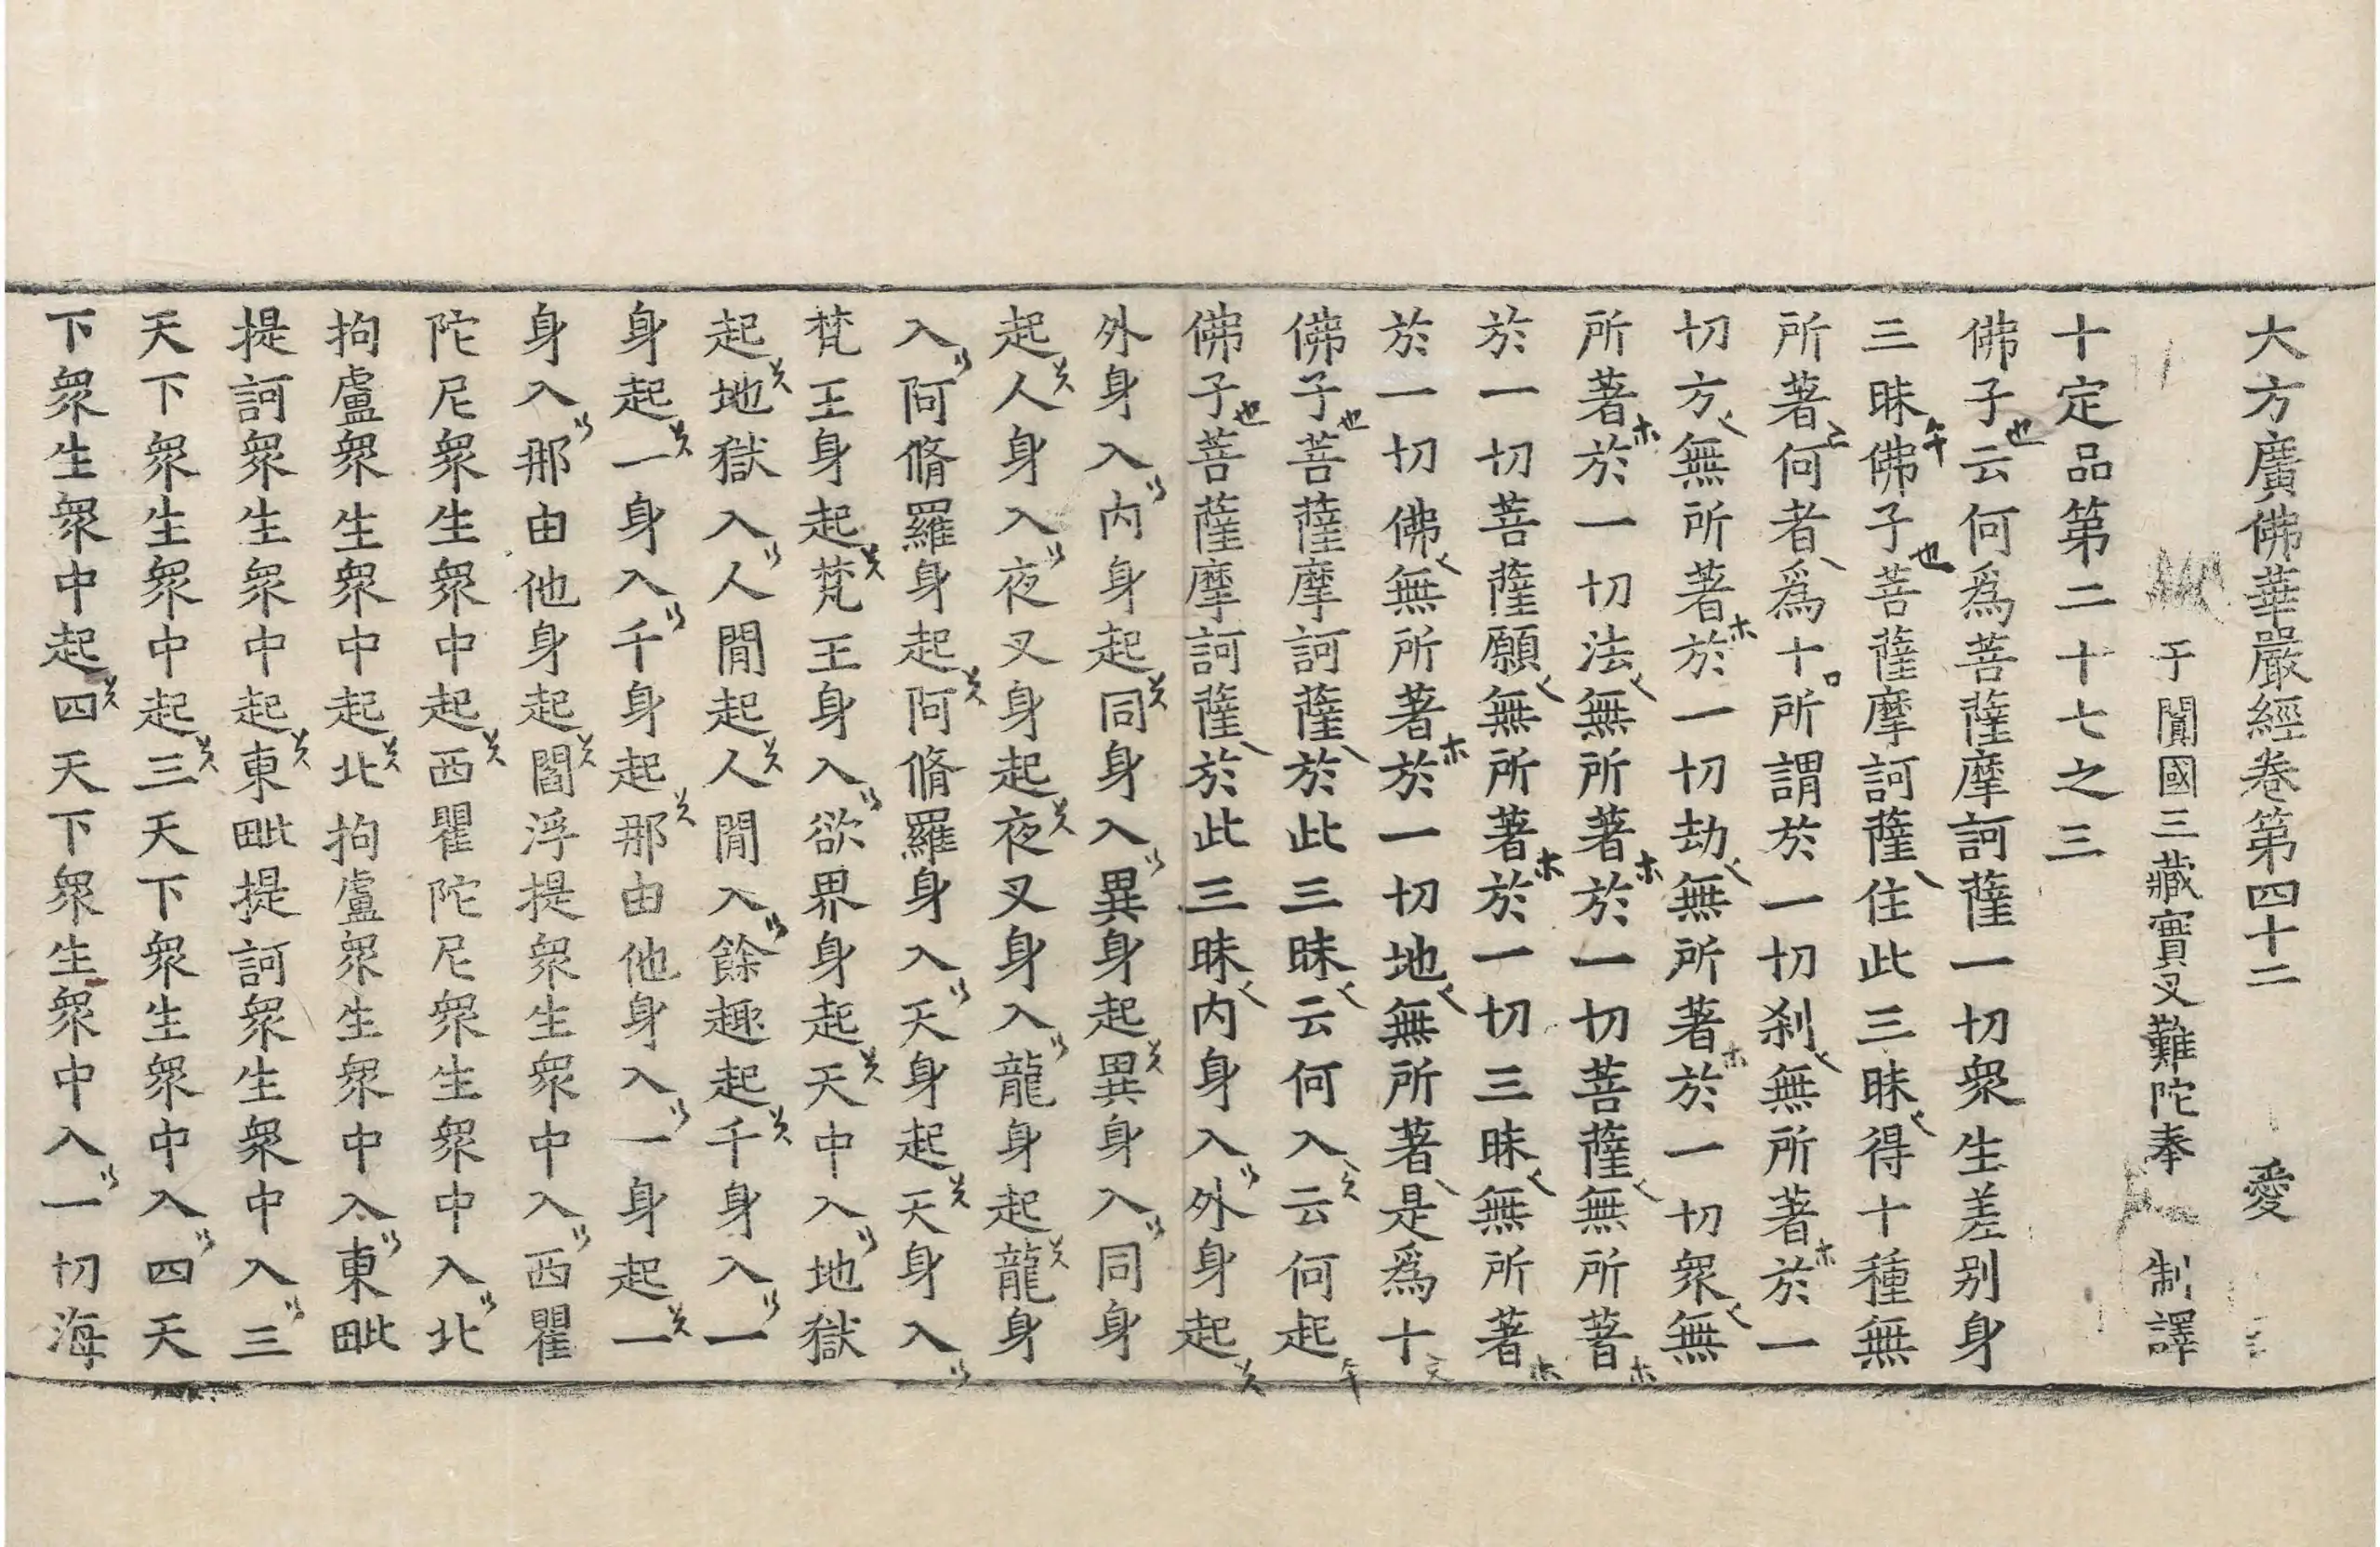 大方廣佛華嚴經卷第四十二 愛
于闐國三藏實叉難陀奉 制譯
十定品第二十七之三
佛子也云何爲菩薩摩訶薩一切衆生差别身
三昧佛子也菩薩摩訶薩住此三昧得十種無
所著何者爲十所謂於一切刹無所著於一
切方無所著於一切劫無所著於一切衆無
所著於一切法無所著於一切菩薩無所著
於一切菩薩願無所著於一切三昧無所著
於一切佛無所著於一切地無所著是爲十
佛子也菩薩摩訶薩於此三昧云何入云何起
佛子也菩薩摩訶薩於此三昧内身入外身起
外身入内身起同身入異身起異身入同身
起人身入夜叉身起夜叉身入龍身起龍身
入阿脩羅身起阿脩羅身入天身起天身入
梵王身起梵王身入欲界身起天中入地獄
起地獄入人間起人間入餘趣起千身入一
身起一身入千身起那由他身入一身起一
身入那由他身起閻浮提衆生衆中入西瞿
陀尼衆生衆中起西瞿陀尼衆生衆中入北
拘盧衆生衆中起北拘盧衆生衆中入東毗
提訶衆生衆中起東毗提訶衆生衆中入三
天下衆生衆中起三天下衆生衆中入四天
下衆生衆中起四天下衆生衆中入一切海